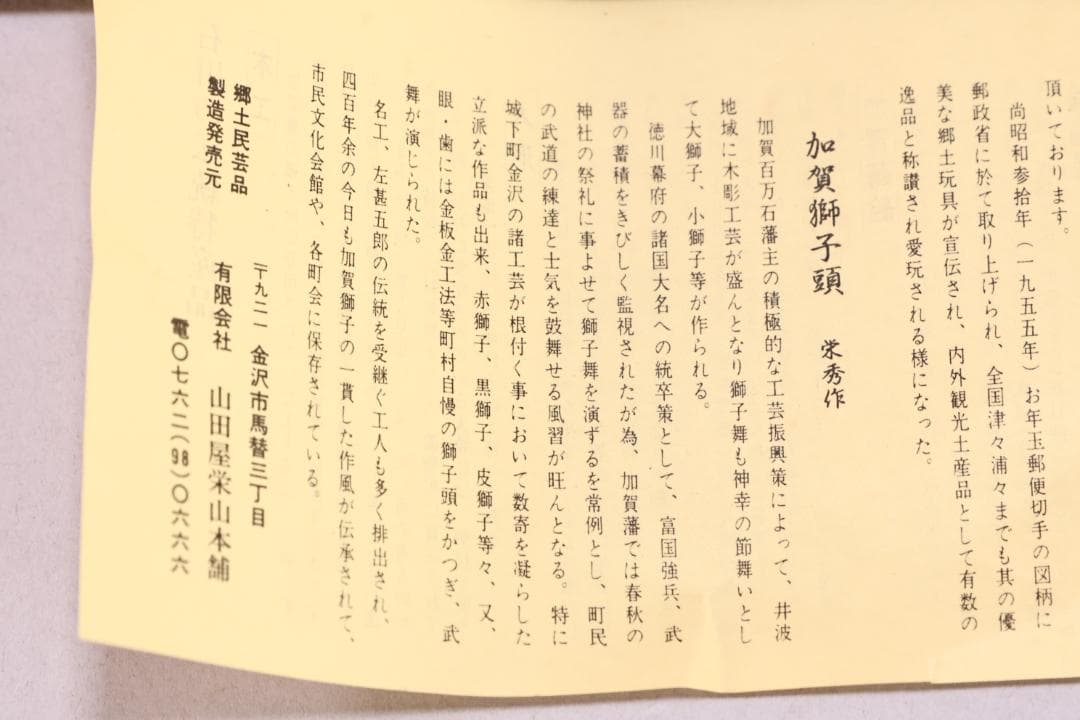 頂いております。
尚昭和参拾年（一九五五年）お年玉郵便切手の図柄に
郵政省に於て取り上げられ、全国津々浦々までも其の優
美な郷土玩具が宣伝され、内外観光土産品として有数の
逸品と称讃され愛玩される様になった。
加賀獅子頭　栄秀作
加賀百万石藩主の積極的な工芸振興策によって、井波
地域に木彫工芸が盛んとなり獅子舞も神幸の節舞いとし
て大獅子、小獅子等が作られる。
徳川幕府の諸国大名への統卒策として、富国強兵、武
器の蓄積をきびしく監視されたが為、加賀藩では春秋の
神社の祭礼に事よせて獅子舞を演ずるを常例とし、町民
の武道の練達と士気を鼓舞せる風習が旺んとなる。特に
城下町金沢の諸工芸が根付く事において数寄を凝らした
立派な作品も出来、赤獅子、黒獅子、皮獅子等々、又、
眼・歯には金板金工法等町村自慢の獅子頭をかつぎ、武
舞が演じられた。
名工、左甚五郎の伝統を受継ぐ工人も多く排出され、
四百年余の今日も加賀獅子の一貫した作風が伝承されて、
市民文化会館や、各町会に保存されている。
郷土民芸品　〒九二一　金沢市馬替三丁目
製造発売元　有限会社　山田屋栄山本舗
電〇七六二（98）〇六六六